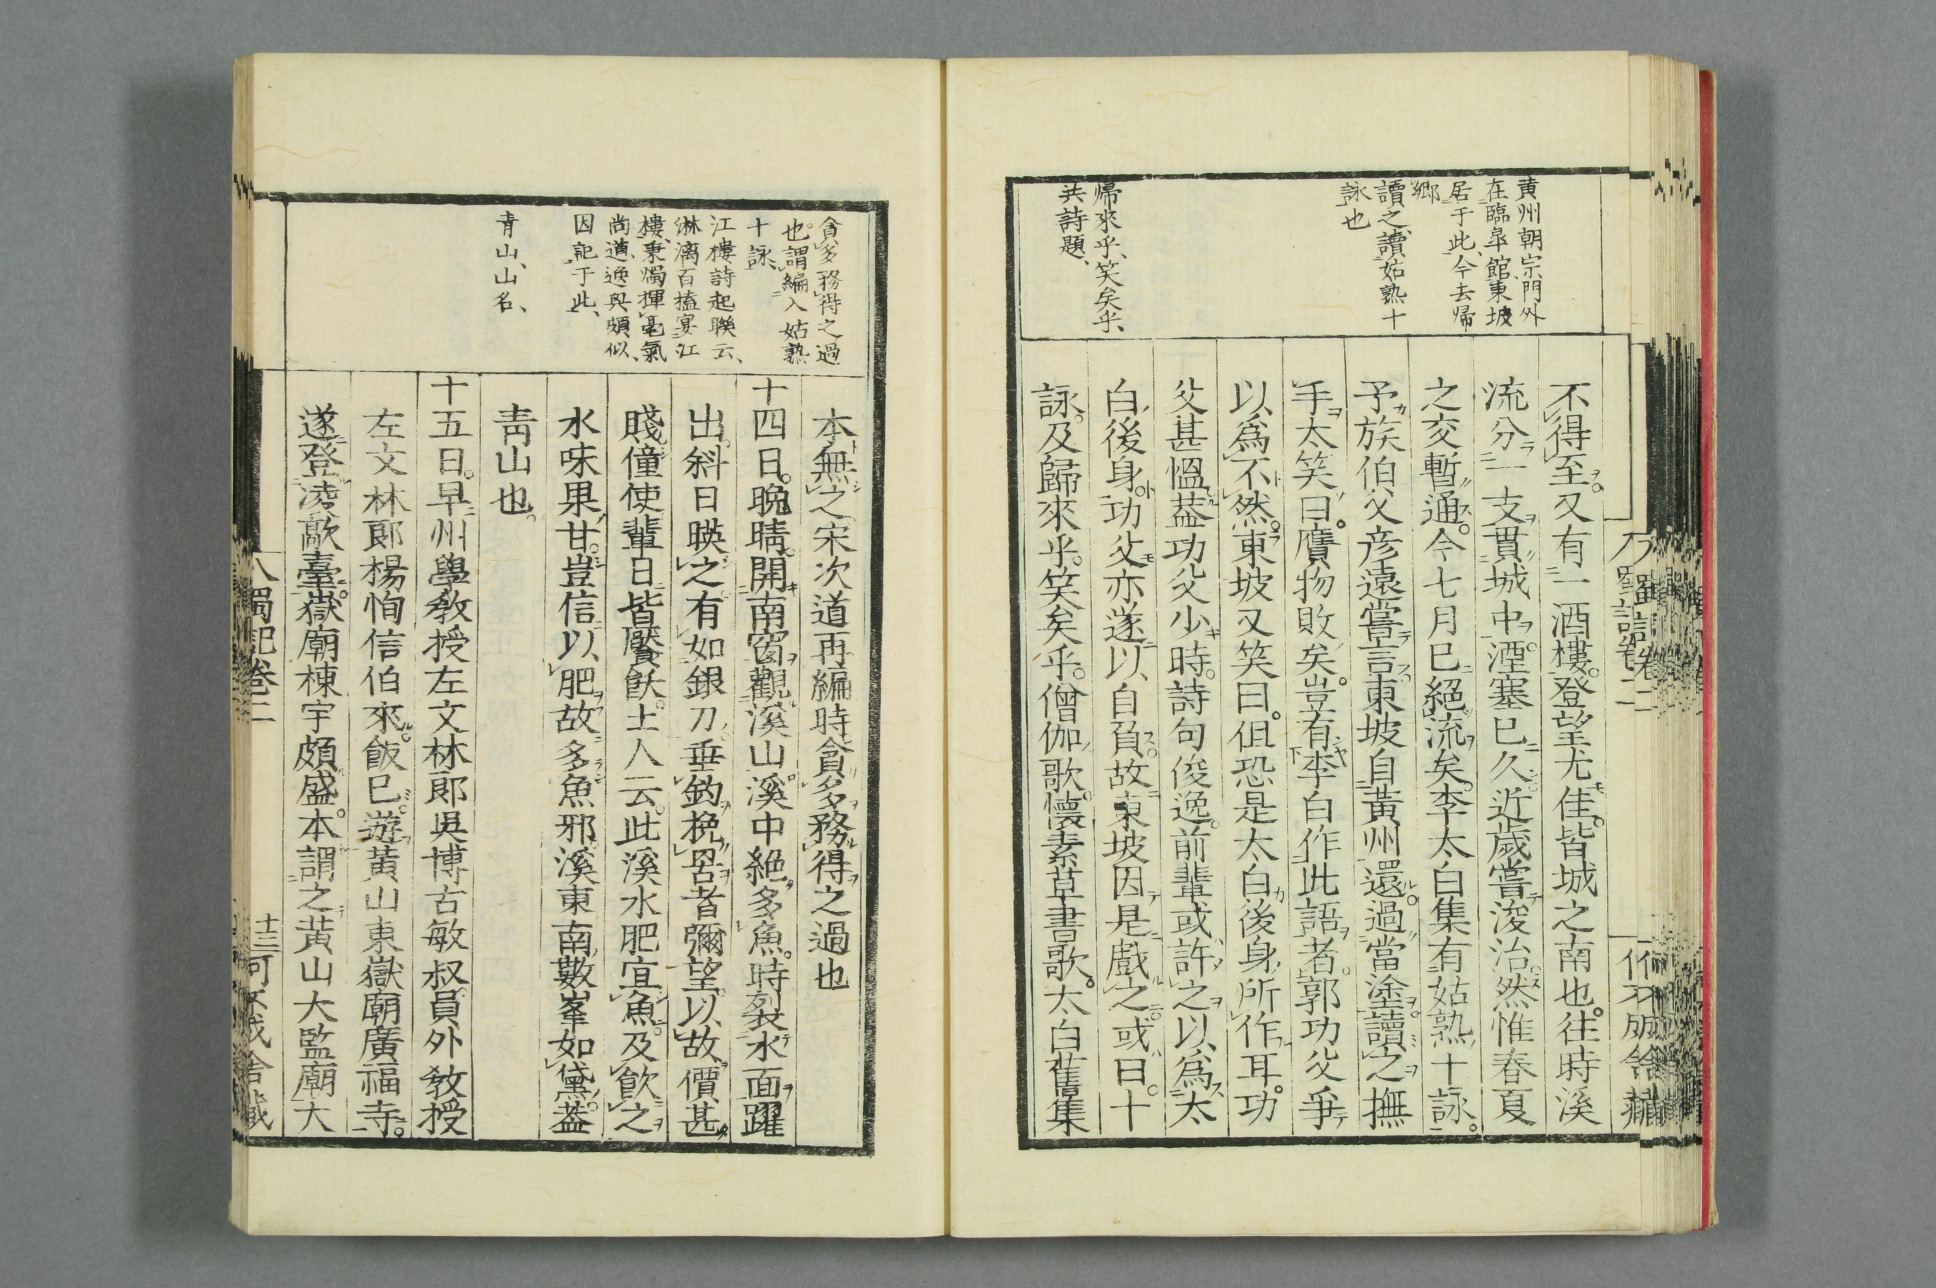 黄州朝宗門外
在臨皐館、東坡
居于此、今去帰
郷
讀之、讀姑熟十
詠也
帰來乎、笑矣乎、
共詩題、
不得至。又有一酒樓。登望尤佳。皆城之南也。往時溪
流分一支貫城中。湮塞已久。近歳嘗浚治。然惟春夏
之交暫通。今七月已絕流矣。李太白集有姑熟十詠。
予族伯父彦遠嘗言東坡自黄州還。過當塗。讀之撫
手太笑曰。贋物敗矣。豈有李白作此語者。郭功父爭
以爲不然。東坡又笑曰。但恐是太白後身所作耳。功
父甚慍。蓋功父少時。詩句俊逸。前輩或許之以爲太
白後身。功父亦遂以自負。故東坡因是戲之。或曰。十
詠。及歸來乎。笑矣乎。僧伽歌。懷素草書歌。太白舊集
貪多務得之過
也。謂編入姑熟
十詠、
江樓詩起聯云、
淋漓百榼宴江
樓、秉燭揮毫氣
尚遒、逸與頗似、
因記于此、
青山、山名、
本無之。宋次道再編時貪多務得之過也
十四日。晩晴。開南窗觀溪山。溪中絕多魚。時裂水面躍
出。斜日暎之。有如銀刀。垂釣挽罟者彌望。以故價甚
賤。僮使輩日皆饜飫。土人云。此溪水肥宜魚。及飲之
水味果甘。豈信以肥故多魚邪。溪東南數峯如黛。蓋
靑山也。
十五日。早州學教授左文林郎吳博古敏叔。員外教授
左文林郎楊恂信伯來。飯已。遊黄山東嶽廟廣福寺。
遂登淩歊臺。嶽廟棟宇頗盛。本謂之黃山大監廟。大
蜀記卷二
十三